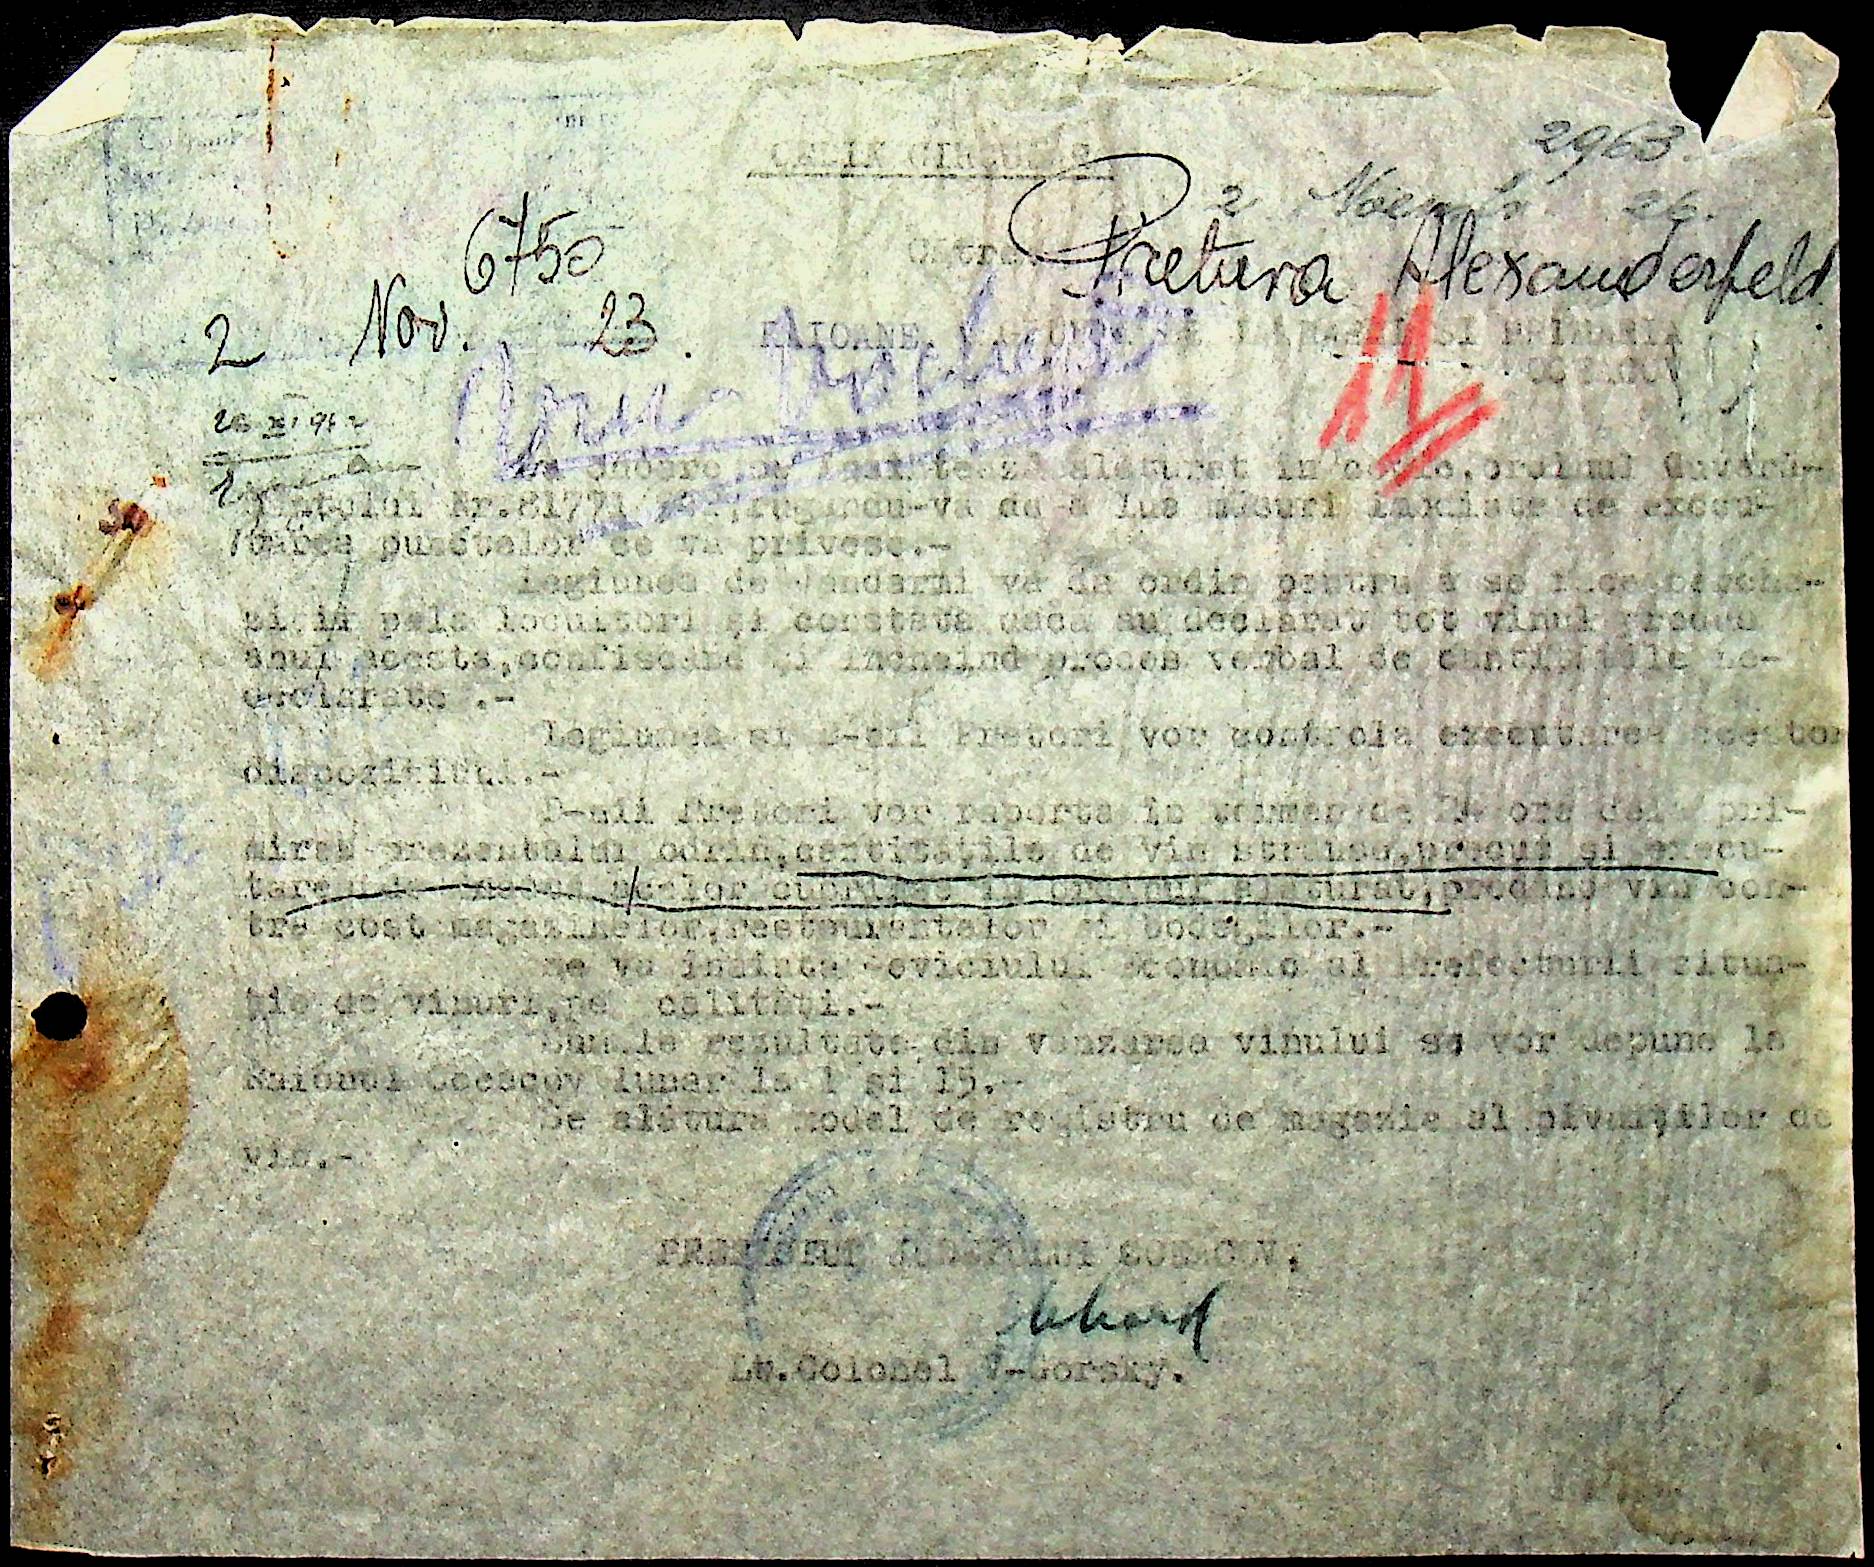 2963.
2 Noemb. 29.
ORDIN CIRCULAR
6750
Către,
Pretura Alexanderfeld
2 Nov. 23.
RAIOANE, SI PRIMARIA
26 XI 942
alăturat in copie, ordinul Guvernă-
mântului Nr. 81771 rugându-vă de a lua măsuri imediate de execu-
tarea punctelor ce vă privesc.-
Legiunea de Jandarmi va da ordin pentru a se face perche-
ziții pela locuitori și constata dacă au declarat tot vinul produs
anul acesta, confiscând și incheind proces verbal de cantitățile ne-
declarate .-
Legiunea si D-nii Pretori vor controla executarea acestor
dispozitiuni.-
D-nii Pretori vor raporta in termen de ore dela pri-
mirea prezentului odrin, cantitățile de vin stranse, precum și execu-
tarea cuprinse in ordinul alăturat, predând vin con-
tra cost magazinelor, restaurantelor și bodegilor.-
Se va inainta Seviciului Economic al Prefecturii situa-
ție de vinuri, pe calități.-
Sumele rezultate din vanzarea vinului se vor depune la
Raionul Oceacov lunar la 1 și 15.-
Se alătura model de registru de magazie al pivniților de
vin.-
PREFECTUL JUDEȚULUI OCEACOV,
Lt.Colonel V-Gorsky.